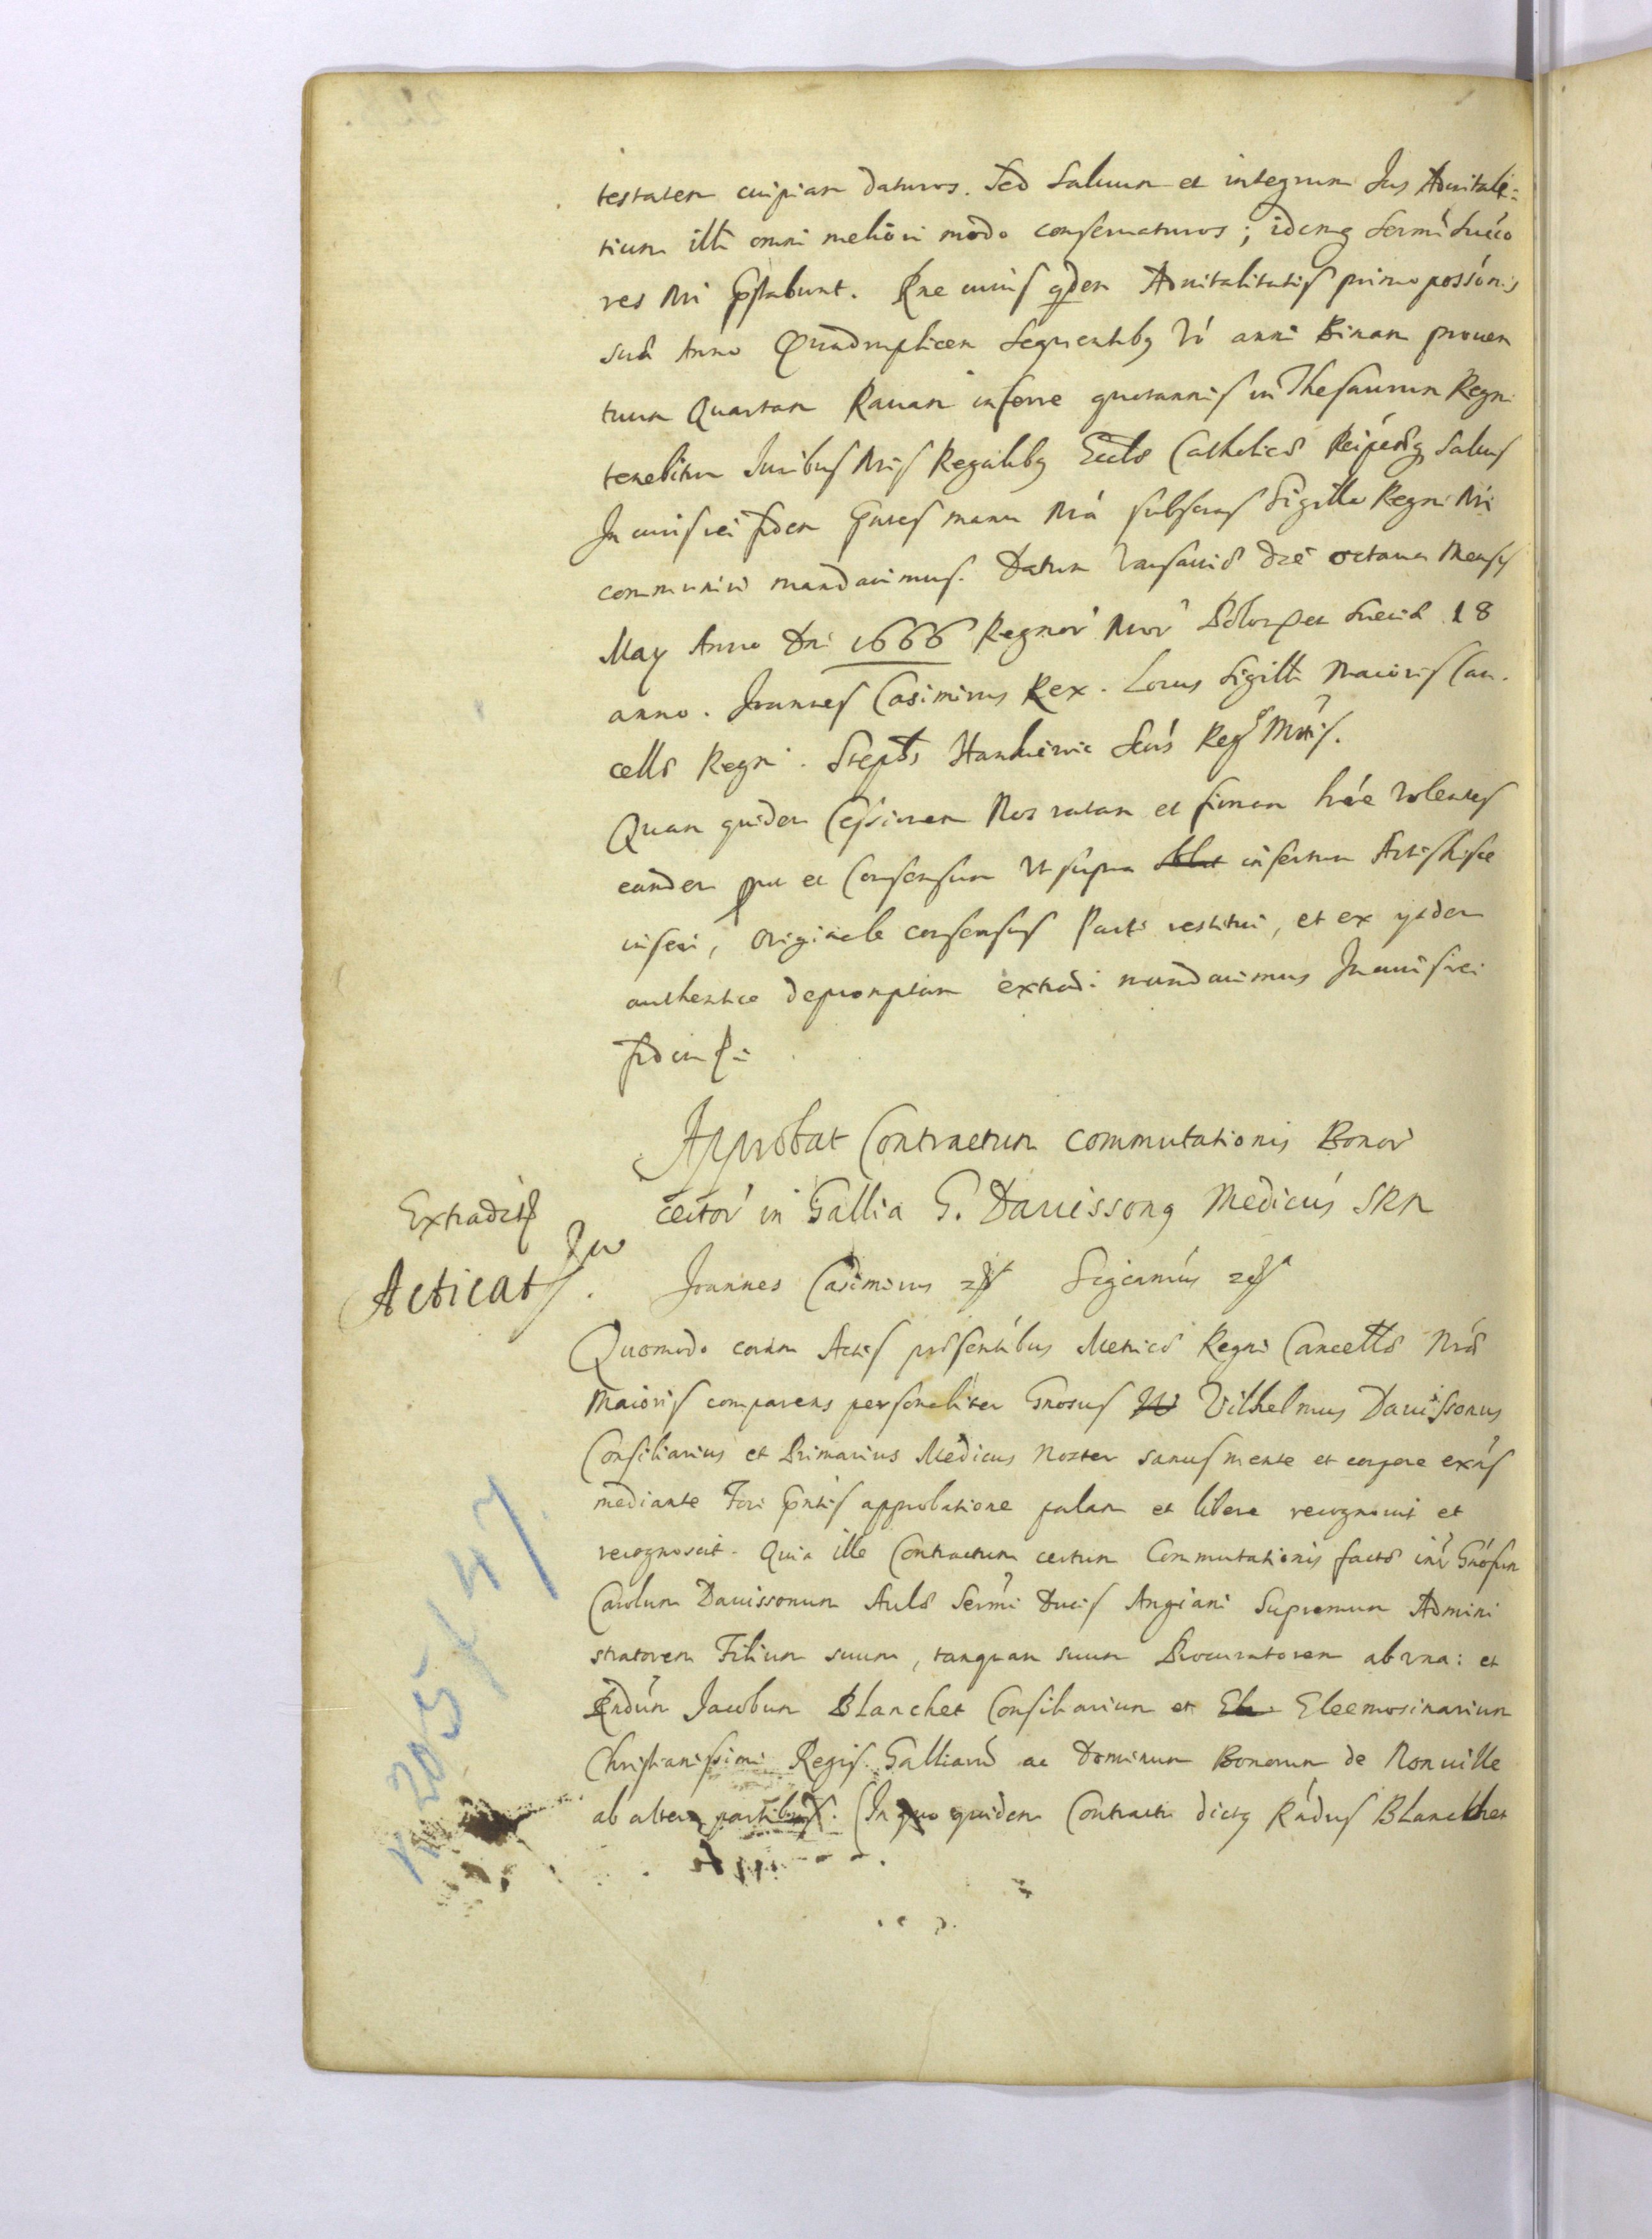 testatem cuipiam daturos. Sed Saluum et integrum Jus Aduitali=
tium illi omni meliori modo conseruaturos; idemq Sermi Succo
res Nri pstabunt. Rne cuius qdem Aduitalitatis primo possonis
suae Anno Quadruplicem sequentibq vo anni Binam prouen
tuum Quartam Rauam inferre quotannis in Thesaurum Regni
tenebitur Juribus Nris Regalibq Ecclae Catholicae Reipcaeq Saluis
In cuius rei fidem Gntes manu Nra subscras Sigillo Regni Nri
communiri mandauimus. Datum Varsauiae die octaua Mensis
May Anno Dni 1666 Regnor Nror Poloae et Sueciae 18
anno. Joannes Casimirus Rex. Locus Sigilli Maioris Can.
cellae Regni. Stephs Hankiewic Scrs Reg Mttis.
Quam quidem Cessionem Nos ratam et firmam hre volentes
eandem pu et Consensum Ut supra insertum Actis hisce
inseri, originale consensus Parti restitui, et ex ysdem
authentice depromptam extradi mandauimus In cuius rei
fidem
Approbat Contractum commutationis Bonor
certor in Gallia G. Dauissonq Medicus SRM
Extradit
Acticat
Joannes Casimirus Sigcamus
Quomodo coram Actis praesentibus Metricae Regni Cancellae Nrae
Maioris comparens personaliter Gnosus Vilhelmus Dauissonus
Consiliarius et Primarius Medicus Noster sanus mente et corpore exns
mediante Fori Gntis approbatione palam et libere recognouit et
recognoscit. Quia ille Contractum certum Commutationis factae intr Gnosum
Carolum Dauissonum Aulae Sermi Ducis Angiani Supremum Admini
stratorem Filium suum, tanquam suum Procuratorem ab vna: et
Rndum Jacobum Blanchet Consiliarium et Eleemosinarium
Christianissimi Regis Galliarum ac Dominum Bonorum de Nonuille
ab altera partibus. In quo quidem Contractu dictq Rndus Blanchet